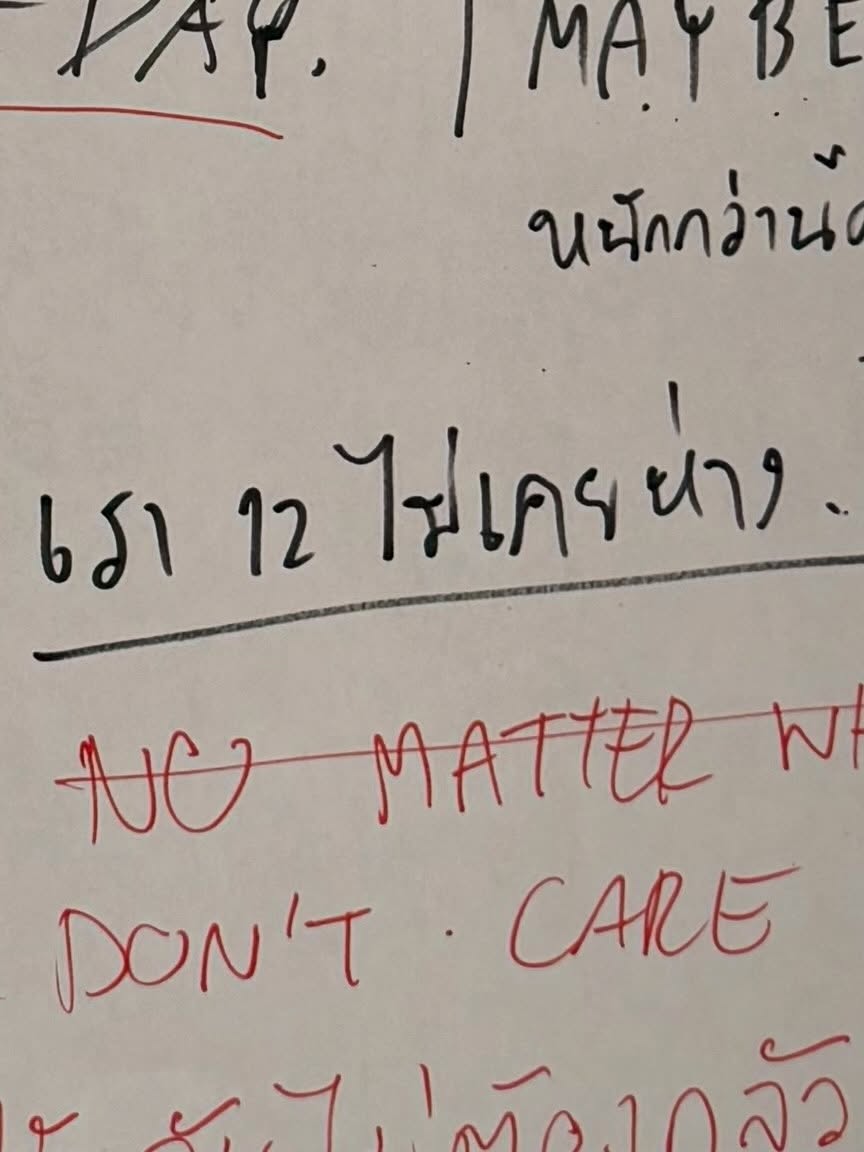 DAY. | MAYBE
หนักกว่านี้
เรา 12 ไม่เคยห่าง.
NO MATTER
DON'T CARE
ไม่ต้องกลัว